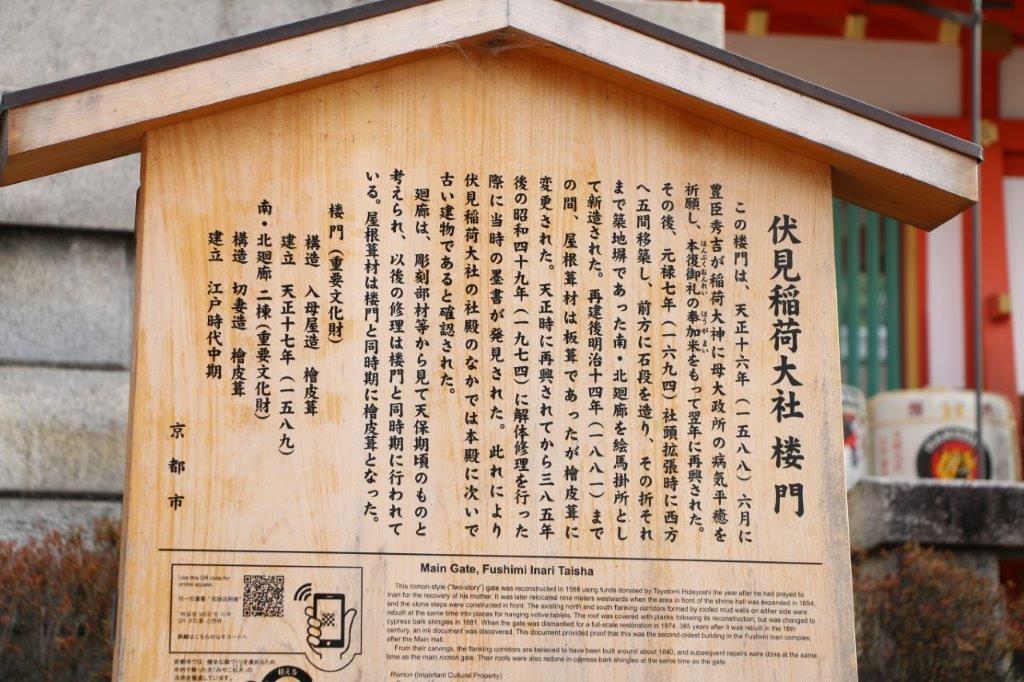 伏見稲荷大社 楼門
この楼門は、天正十六年（一五八八）六月に
豊臣秀吉が稲荷大神に母大政所の病気平癒を
祈願し、本復御礼の奉加米をもって翌年に再興された。
ほんぷくおんれい ほうがまい
その後、元禄七年（一六九四）社頭拡張時に西方
へ五間移築し、前方に石段を造り、その折それ
まで築地塀であった南・北廻廊を絵馬掛所とし
て新造された。再建後明治十四年（一八八一）まで
の間、屋根葺材は板葺であったが檜皮葺に
変更された。天正時に再興されてから三八五年
後の昭和四十九年（一九七四）に解体修理を行った
際に当時の墨書が発見された。此れにより
伏見稲荷大社の社殿のなかでは本殿に次いで
古い建物であると確認された。
廻廊は、彫刻部材等から見て天保期頃のものと
考えられ、以後の修理は楼門と同時期に行われて
いる。屋根葺材は楼門と同時期に檜皮葺となった。
楼門（重要文化財）
構造 入母屋造 檜皮葺
建立 天正十七年（一五八九）
南・北廻廊 二棟（重要文化財）
構造 切妻造 檜皮葺
建立 江戸時代中期
京都市
Main Gate, Fushimi Inari Taisha
This romon-style ("two-story") gate was reconstructed in 1588 using funds donated by Toyotomi Hideyoshi the year after he had prayed to
Inari for the recovery of his mother. It was later relocated nine meters westwards when the area in front of the shrine hall was expanded in 1694,
and the stone steps were constructed in front. The existing north and south flanking corridors formed by roofed mud walls on either side were
rebuilt at the same time into places for hanging votive tablets. The roof was covered with planks following its reconstruction, but was changed to
cypress bark shingles in 1881. When the gate was dismantled for a full-scale restoration in 1974, 385 years after it was rebuilt in the 16th
century, an ink document was discovered. This document provided proof that this was the second-oldest building in the Fushimi Inari complex,
after the Main Hall.
From their carvings, the flanking corridors are believed to have been built around about 1840, and subsequent repairs were done at the same
time as the main romon gate. Their roofs were also redone in cypress bark shingles at the same time as the gate.
Romon (Important Cultural Property)
Use this QR code for
online access.
扫一扫查看"在线访喵"
詳細はこちらのQRコードへ
京都市では、健全な森づくりを進めるため、
市内で育った木「みやこ杣木」の
活用を推進しています。